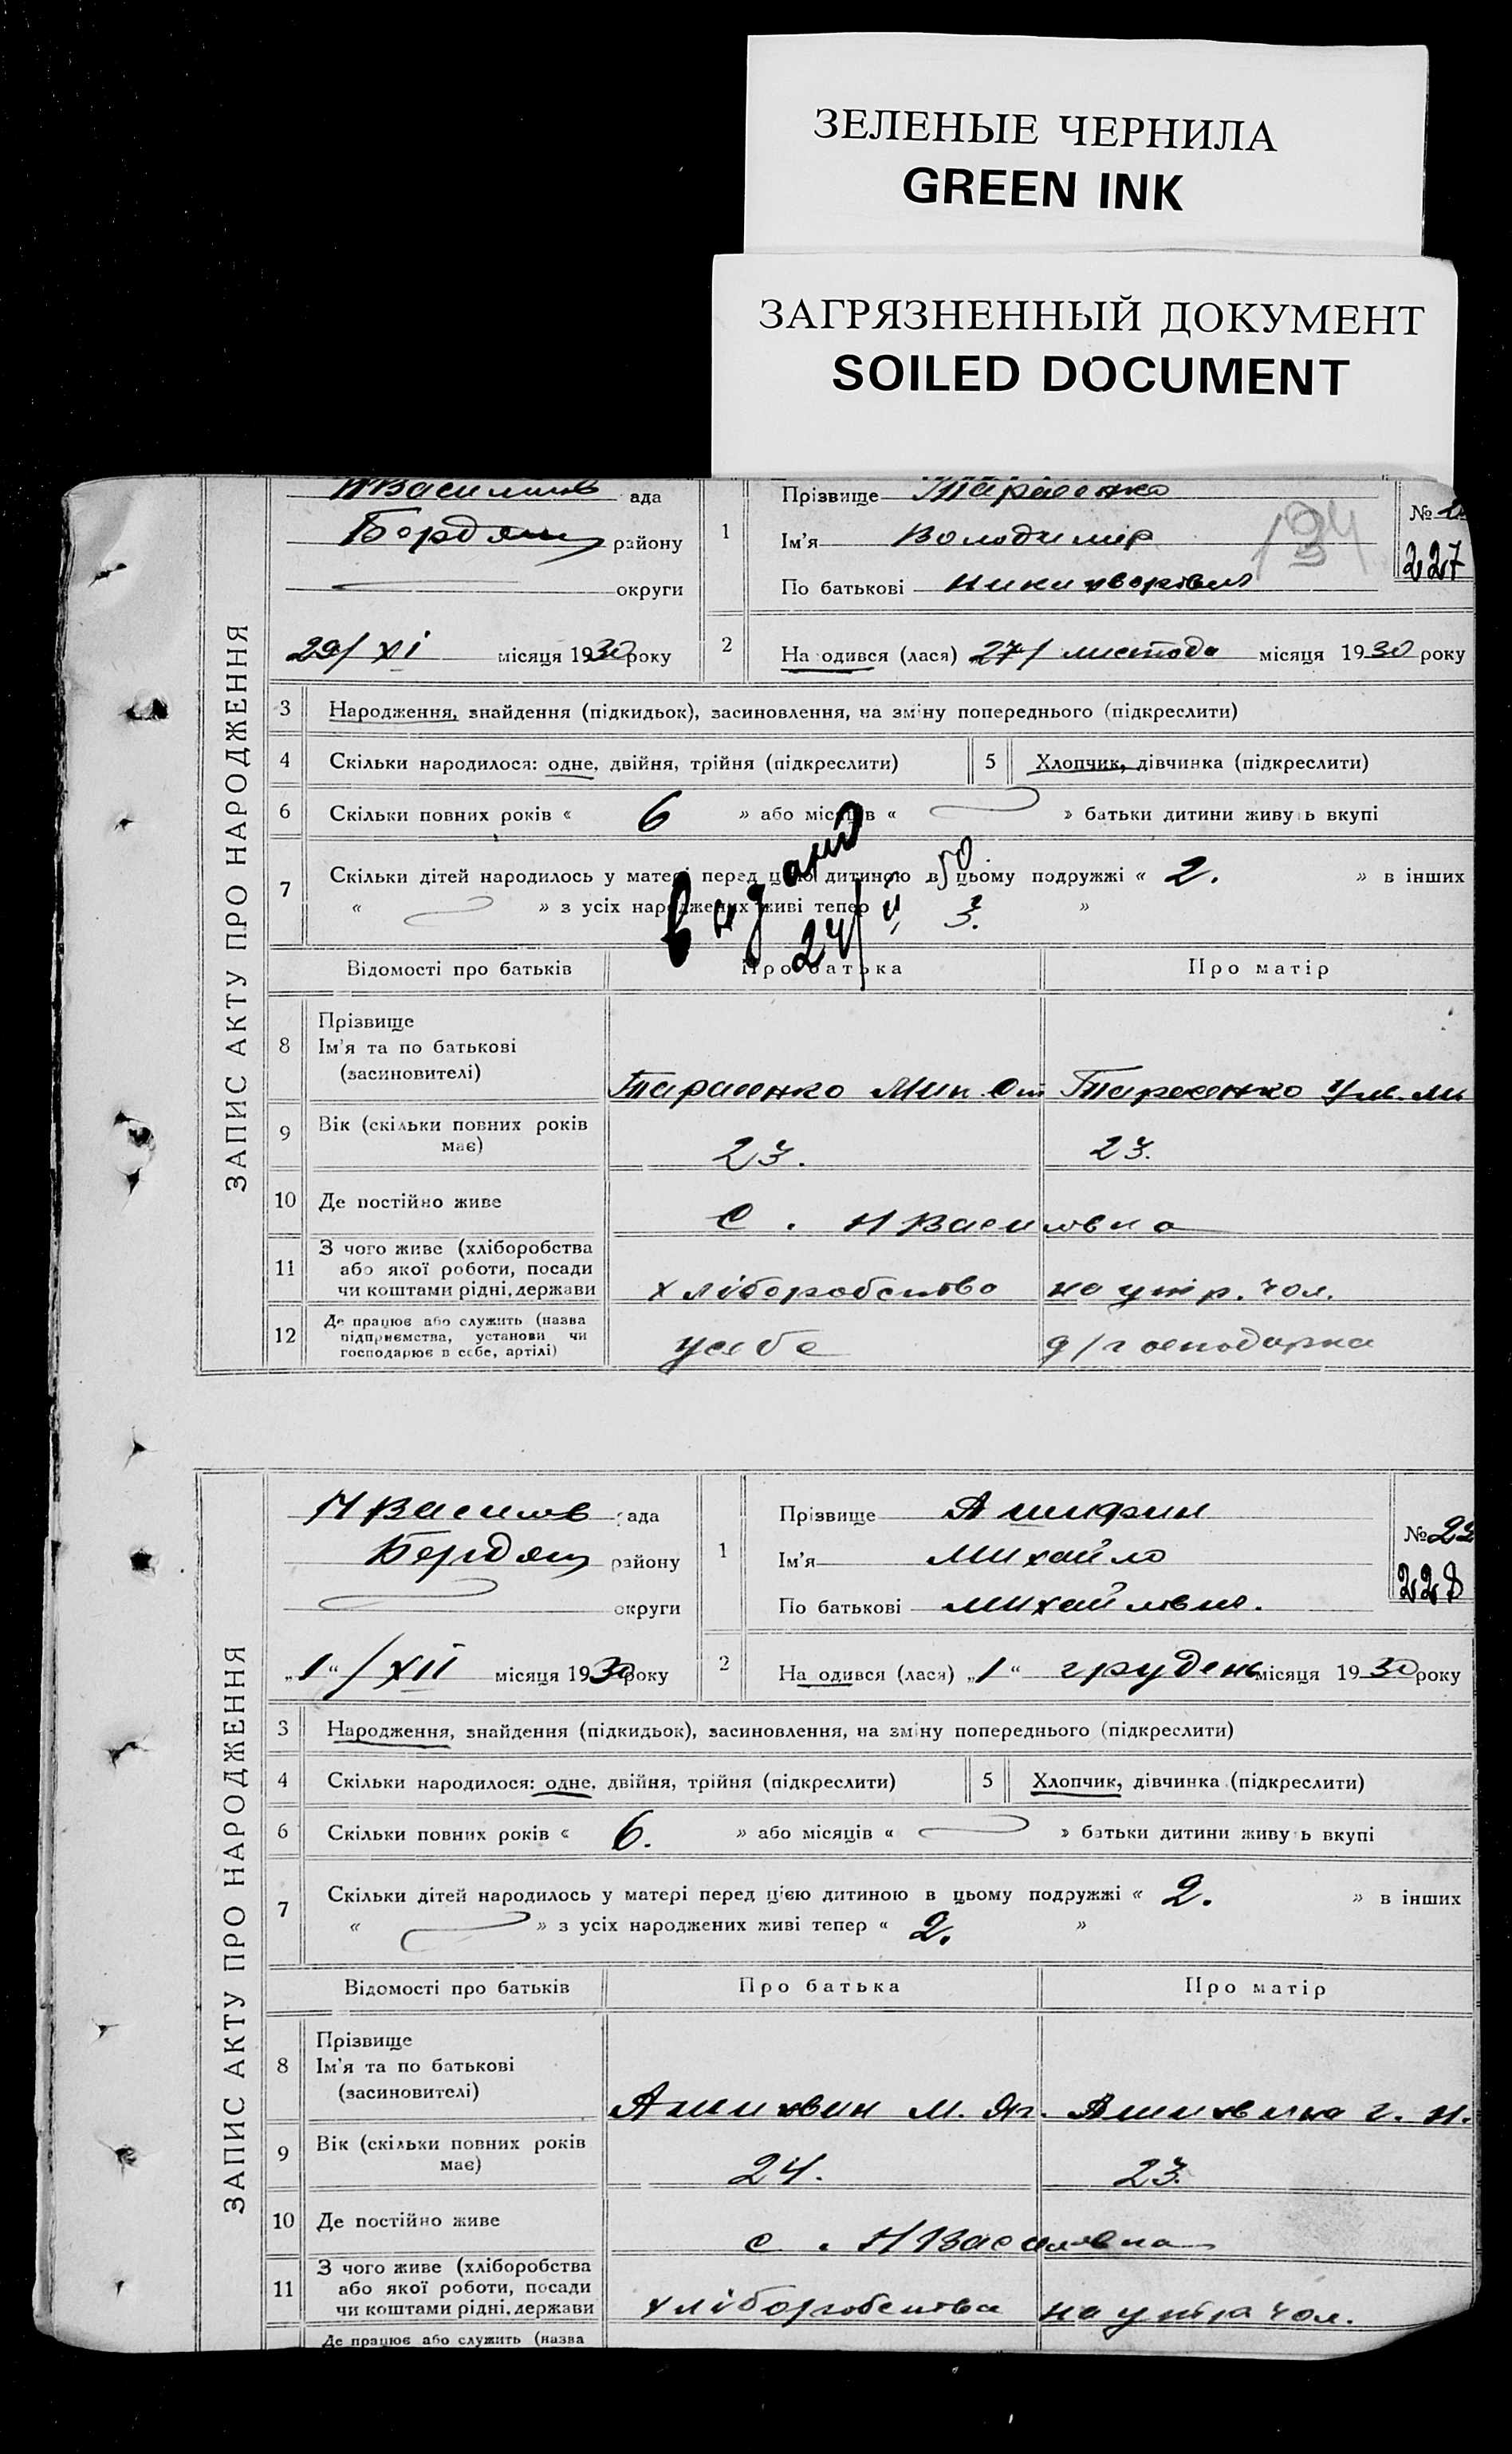 ЗЕЛЕНЫЕ ЧЕРНИЛА
GREEN INK
ЗАГРЯЗНЕННЫЙ ДОКУМЕНТ
SOILED DOCUMENT
ЗАПИС АКТУ ПРО НАРОДЖЕННЯ
НВасилів ада
району
округи
29/XI місяця 1930 року
1 Прізвище Тарасенко
Ім'я Володимир
По батькові
194
№
227
2 На одився (лася) 27/ листода місяця 1930 року
3 Народження, знайдення (підкидьок), засиновлення, на зміну попереднього (підкреслити)
4 Скільки народилося: одне, двійня, трійня (підкреслити) 5 Хлопчик, дівчинка (підкреслити)
6 Скільки повних років « 6 » або місяців « » батьки дитини живуть вкупі
7 Скільки дітей народилось у матері перед цією дитиною в цьому подружжі « 2. » в інших
« » з усіх народжених живі тепер 3. »
видано
24/II 50
Відомості про батьків Про батька Про матір
8 Прізвище
Ім'я та по батькові
(засиновителі)
Тарасенко Мик. Тарасенко
9 Вік (скільки повних років має) 23. 23.
10 Де постійно живе с. НВасиловка
11 З чого живе (хліборобства
або якої роботи, посади
чи коштами рідні, держави хліборобство на утр. чол.
12 Де працює або служить (назва
підприємства, установи чи
господарює в себе, артілі) у себе д/господарка
ЗАПИС АКТУ ПРО НАРОДЖЕННЯ
НВасилов ада
Бердян району
округи
„1“/XII місяця 1930 року
1 Прізвище
Ім'я Михайло
По батькові Михайлович.
№ 22
228
2 На одився (лася) „1“ грудень місяця 1930 року
3 Народження, знайдення (підкидьок), засиновлення, на зміну попереднього (підкреслити)
4 Скільки народилося: одне, двійня, трійня (підкреслити) 5 Хлопчик, дівчинка (підкреслити)
6 Скільки повних років « 6. » або місяців « » батьки дитини живу ь вкупі
7 Скільки дітей народилось у матері перед цією дитиною в цьому подружжі « 2. » в інших
« » з усіх народжених живі тепер « 2. »
Відомості про батьків Про батька Про матір
8 Прізвище
Ім'я та по батькові
(засиновителі)
М. Г. Н.
9 Вік (скільки повних років має) 24. 23.
10 Де постійно живе с. НВасиловка
11 З чого живе (хліборобства
або якої роботи, посади
чи коштами рідні, держави хліборобства на утра чол.
Де працює або служить (назва